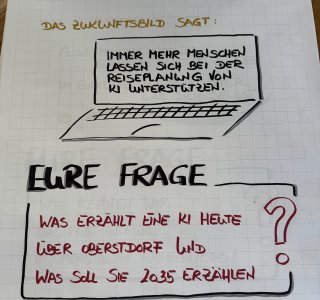 DAS ZUKUNFTSBILD SAGT:
IMMER MEHR MENSCHEN
LASSEN SICH BEI DER
REISEPLANUNG VON
KI UNTERSTÜTZEN.
EURE FRAGE
WAS ERZÄHLT EINE KI HEUTE
ÜBER OBERSTDORF UND
WAS SOLL SIE 2035 ERZÄHLEN
?